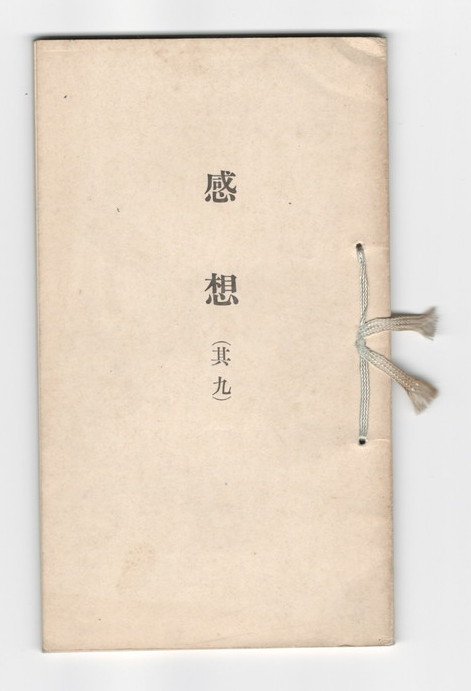 感想（其九）